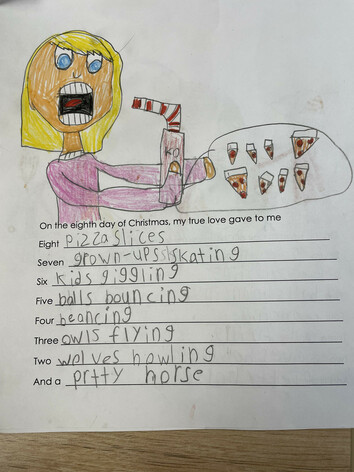 On the eighth day of Christmas, my true love gave to me
Eight pizza slices
Seven grown-ups skating
Six kids giggling
Five balls bouncing
Four beancing
Three owls flying
Two wolves howling
And a prtty horse